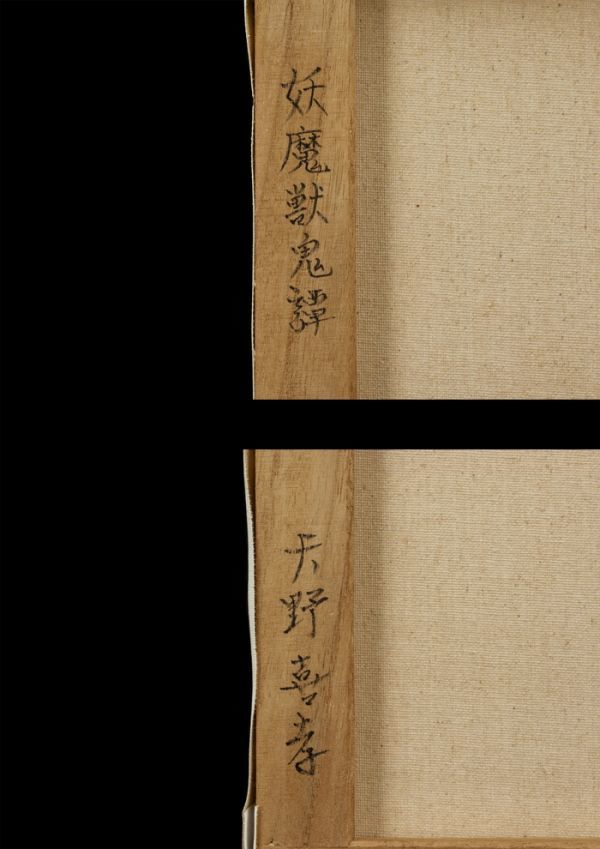 妖魔獣鬼譚
天野喜孝